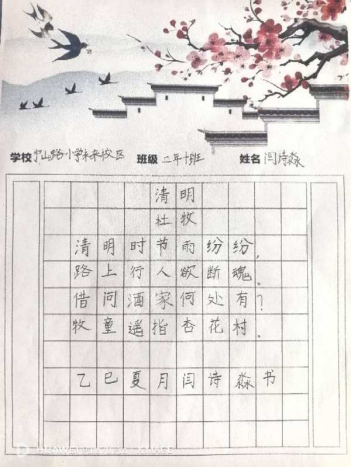 学校 山路小学未来校区 班级 二年十班 姓名 闫诗淼
清明
杜牧
清明时节雨纷纷,
路上行人欲断魂。
借问酒家何处有?
牧童遥指杏花村.
乙巳夏月闫诗淼书